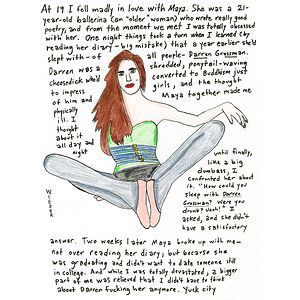 At 19 I fell madly in love with Maya. She was a 21-
year-old ballerina (an "older" woman) who wrote really good
poetry, and from the moment we met I was totally obsessed
with her. One night things took a turn when I learned (by
reading her diary - big mistake) that a year earlier she'd
slept with - of all people - Darren Grossman.
Darren was a shredded, ponytail-waving
cheesedick who'd converted to Buddhism just
to impress girls, and the thought
of him and Maya together made me
physically
ill. I
thought
about it
all day and
night
until finally,
like a big
dumbass, I
confronted her about
it. "How could you
sleep with Darren
Grossman? Were you
drunk? Yech!" I
asked, and she didn't
have a satisfactory
WIEDER
answer. Two weeks later Maya broke up with me -
not over reading her diary, but because she
was graduating and didn't want to date someone still
in college. And while I was totally devastated, a bigger
part of me was relieved that I didn't have to think
about Darren fucking her anymore. Yuck city